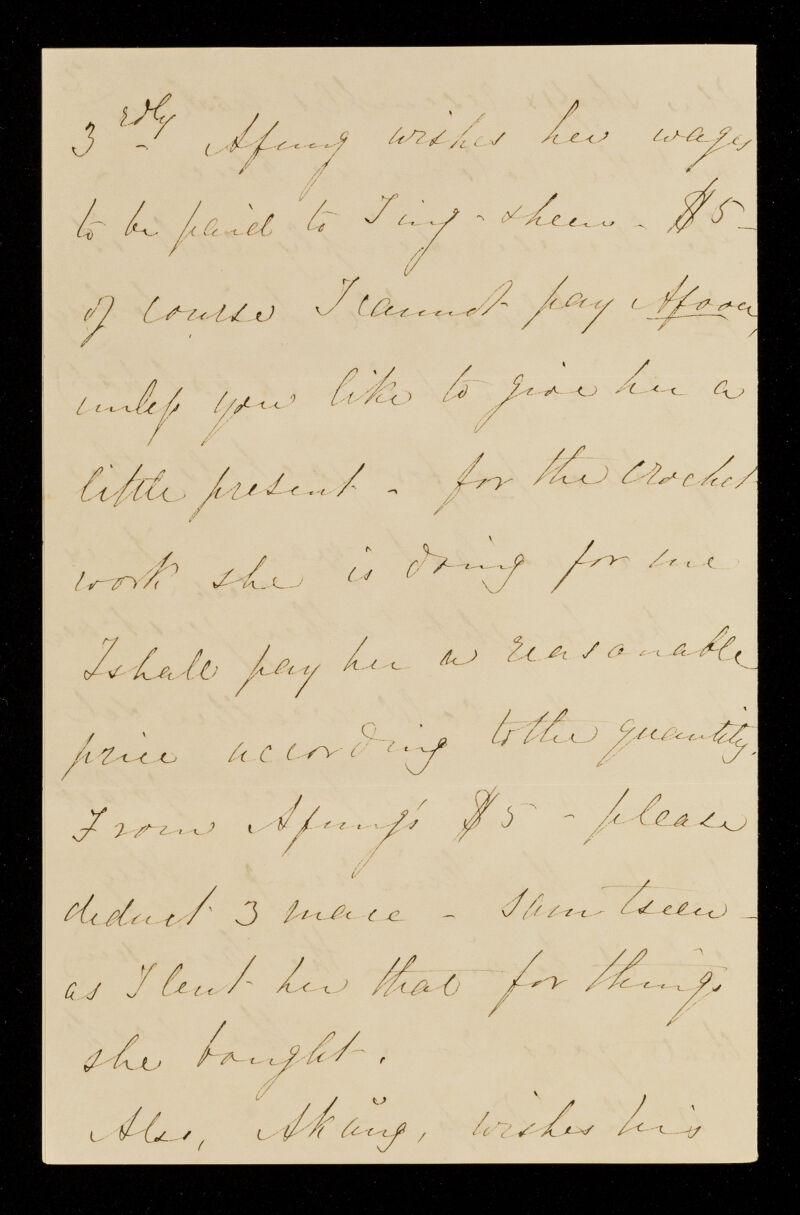 3rdly Afung wishes her wages
to be paid to Ting-sheen - $5 -
of course I cannot pay Afooa,
unless you like to give her a
little present - for the crochet
work she is doing for me
I shall pay her a reasonable
price according to the quantity.
From Afung's $5 - please
deduct 3 mace - sam tseen -
as I lent her that for things
she bought.
Also, Akŭng, wishes his